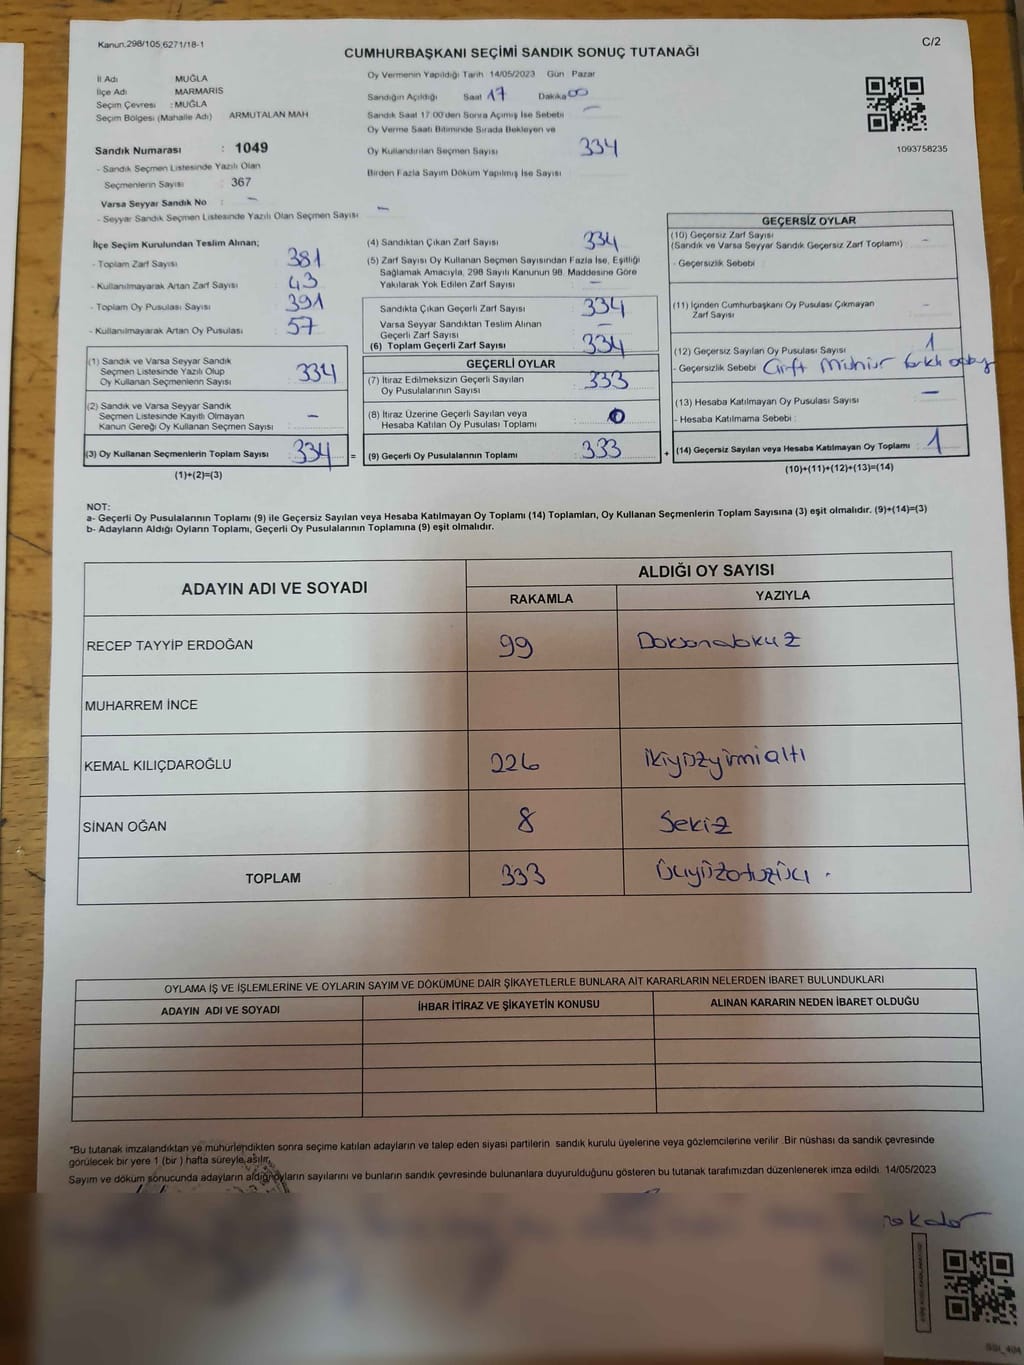 Kanun.298/105,6271/18-1
C/2
CUMHURBAŞKANI SEÇİMİ SANDIK SONUÇ TUTANAĞI
İl Adı MUĞLA
İlçe Adı MARMARİS
Seçim Çevresi : MUĞLA
Seçim Bölgesi (Mahalle Adı) ARMUTALAN MAH
Sandık Numarası : 1049
- Sandık Seçmen Listesinde Yazılı Olan
Seçmenlerin Sayısı : 367
Varsa Seyyar Sandık No : -
- Seyyar Sandık Seçmen Listesinde Yazılı Olan Seçmen Sayısı -
Oy Vermenin Yapıldığı Tarih 14/05/2023 Gün Pazar
Sandığın Açıldığı Saat 17 Dakika 00
Sandık Saat 17:00'den Sonra Açımış İse Sebebi -
Oy Verme Saati Bitiminde Sırada Bekleyen ve
Oy Kullandırılan Seçmen Sayısı 334
Birden Fazla Sayım Döküm Yapılmış İse Sayısı
1093758235
İlçe Seçim Kurulundan Teslim Alınan;
- Toplam Zarf Sayısı 381
- Kullanılmayarak Artan Zarf Sayısı 43
- Toplam Oy Pusulası Sayısı 391
- Kullanılmayarak Artan Oy Pusulası 57
(1) Sandık ve Varsa Seyyar Sandık
Seçmen Listesinde Yazılı Olup
Oy Kullanan Seçmenlerin Sayısı 334
(2) Sandık ve Varsa Seyyar Sandık
Seçmen Listesinde Kayıtlı Olmayan
Kanun Gereği Oy Kullanan Seçmen Sayısı -
(3) Oy Kullanan Seçmenlerin Toplam Sayısı 334 =
(1)+(2)=(3)
(4) Sandıktan Çıkan Zarf Sayısı 334
(5) Zarf Sayısı Oy Kullanan Seçmen Sayısından Fazla İse, Eşitliği
Sağlamak Amacıyla, 298 Sayılı Kanunun 98. Maddesine Göre
Yakılarak Yok Edilen Zarf Sayısı -
Sandıkta Çıkan Geçerli Zarf Sayısı 334
Varsa Seyyar Sandıktan Teslim Alınan
Geçerli Zarf Sayısı -
(6) Toplam Geçerli Zarf Sayısı 334
GEÇERLİ OYLAR
(7) İtiraz Edilmeksizin Geçerli Sayılan
Oy Pusulalarının Sayısı 333
(8) İtiraz Üzerine Geçerli Sayılan veya
Hesaba Katılan Oy Pusulası Toplamı 0
(9) Geçerli Oy Pusulalarının Toplamı 333 +
GEÇERSİZ OYLAR
(10) Geçersiz Zarf Sayısı
(Sandık ve Varsa Seyyar Sandık Geçersiz Zarf Toplamı) -
- Geçersizlik Sebebi
(11) İçinden Cumhurbaşkanı Oy Pusulası Çıkmayan
Zarf Sayısı -
(12) Geçersiz Sayılan Oy Pusulası Sayısı 1
- Geçersizlik Sebebi Çift Mühür farklı aday
(13) Hesaba Katılmayan Oy Pusulası Sayısı -
- Hesaba Katılmama Sebebi :
(14) Geçersiz Sayılan veya Hesaba Katılmayan Oy Toplamı : 1
(10)+(11)+(12)+(13)=(14)
NOT:
a- Geçerli Oy Pusulalarının Toplamı (9) ile Geçersiz Sayılan veya Hesaba Katılmayan Oy Toplamı (14) Toplamları, Oy Kullanan Seçmenlerin Toplam Sayısına (3) eşit olmalıdır. (9)+(14)=(3)
b- Adayların Aldığı Oyların Toplamı, Geçerli Oy Pusulalarının Toplamına (9) eşit olmalıdır.
ADAYIN ADI VE SOYADI
ALDIĞI OY SAYISI
RAKAMLA YAZIYLA
RECEP TAYYİP ERDOĞAN 99 Doksandokuz
MUHARREM İNCE
KEMAL KILIÇDAROĞLU 226 ikiyüzyirmialtı
SİNAN OĞAN 8 Sekiz
TOPLAM 333 Üçyüzotuzüç .
OYLAMA İŞ VE İŞLEMLERİNE VE OYLARIN SAYIM VE DÖKÜMÜNE DAİR ŞİKAYETLERLE BUNLARA AİT KARARLARIN NELERDEN İBARET BULUNDUKLARI
ADAYIN ADI VE SOYADI İHBAR İTİRAZ VE ŞİKAYETİN KONUSU ALINAN KARARIN NEDEN İBARET OLDUĞU
*Bu tutanak imzalandıktan ve mühürlendikten sonra seçime katılan adayların ve talep eden siyasi partilerin sandık kurulu üyelerine veya gözlemcilerine verilir .Bir nüshası da sandık çevresinde
görülecek bir yere 1 (bir ) hafta süreyle asılır.
Sayım ve döküm sonucunda adayların aldığı oyların sayılarını ve bunların sandık çevresinde bulunanlara duyurulduğunu gösteren bu tutanak tarafımızdan düzenlenerek imza edildi. 14/05/2023